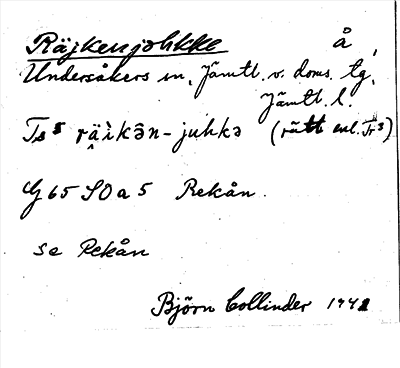 Räjkenjohkke å,
Undersåkers sn, Jämtl. v. doms. tg,
Jämtl. l.
Ts⁵ rä̭ìkə̑n-juhkə (rätt enl. Tr³)
G 65 SO a 5 Rekån.
se Rekån
Björn Collinder 1942